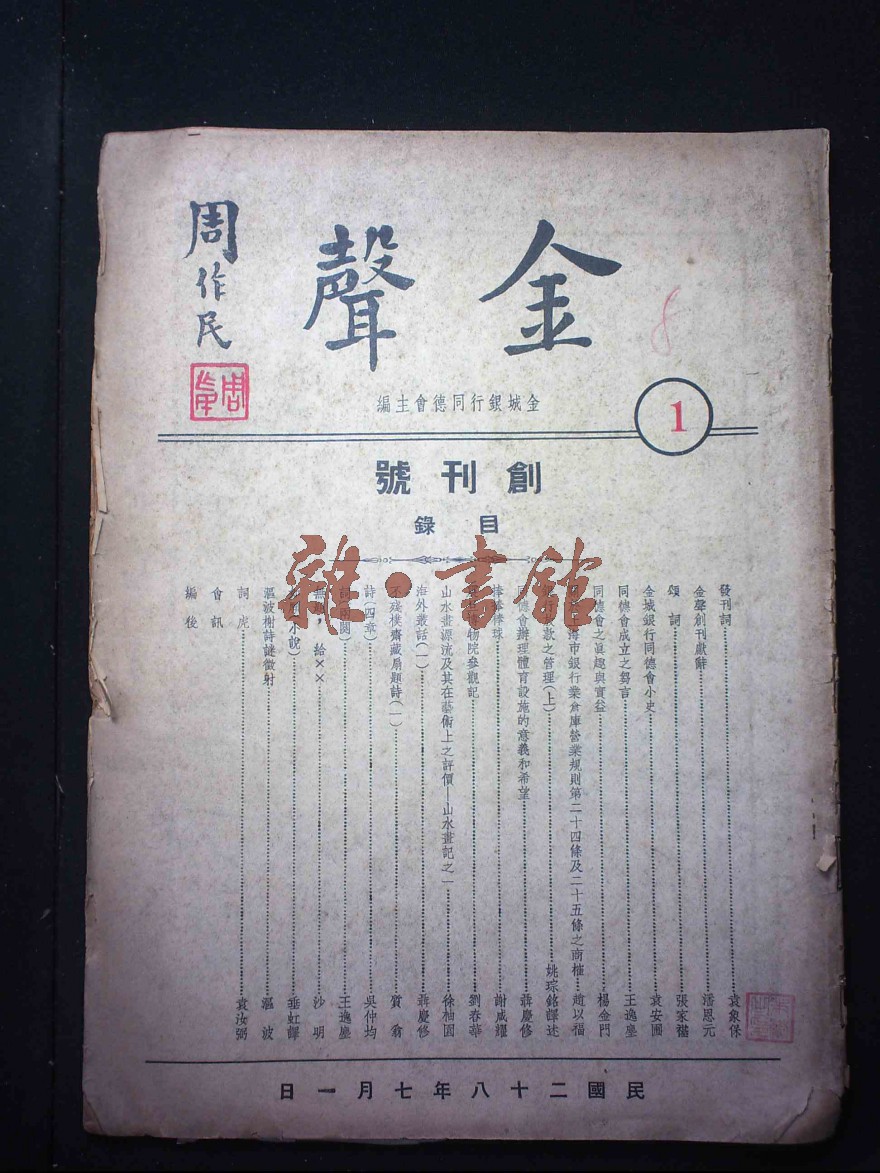 金聲
周作民
金城銀行同德會主編
1
創刊號
目錄
發刊詞 袁象保
金聲創刊獻辭 潘恩元
頌詞 張家禥
金城銀行同德會小史 袁安圃
同德會成立之芻言 王逸塵
同德會之眞趣與實益 楊金門
海市銀行業倉庫營業規則第二十四條及二十五條之商榷 趙以福
款之管理(上) 姚琮銘譯述
會辦理體育設施的意義和希望 薛慶修
棒球 謝咸耀
物院參觀記 劉春華
山水畫源流及其在藝術上之評價—山水畫記之一 徐柚園
海外叢話(一) 薛慶修
不殘樸齋藏扇題詩(一) 質翁
詩(四章) 吳仲均
王逸塵
給×× 沙明
小說) 垂虹譯
漚波榭詩謎徵射 漚波
詞虎 袁汝弼
會訊
編後
雜·書館
民國二十八年七月一日